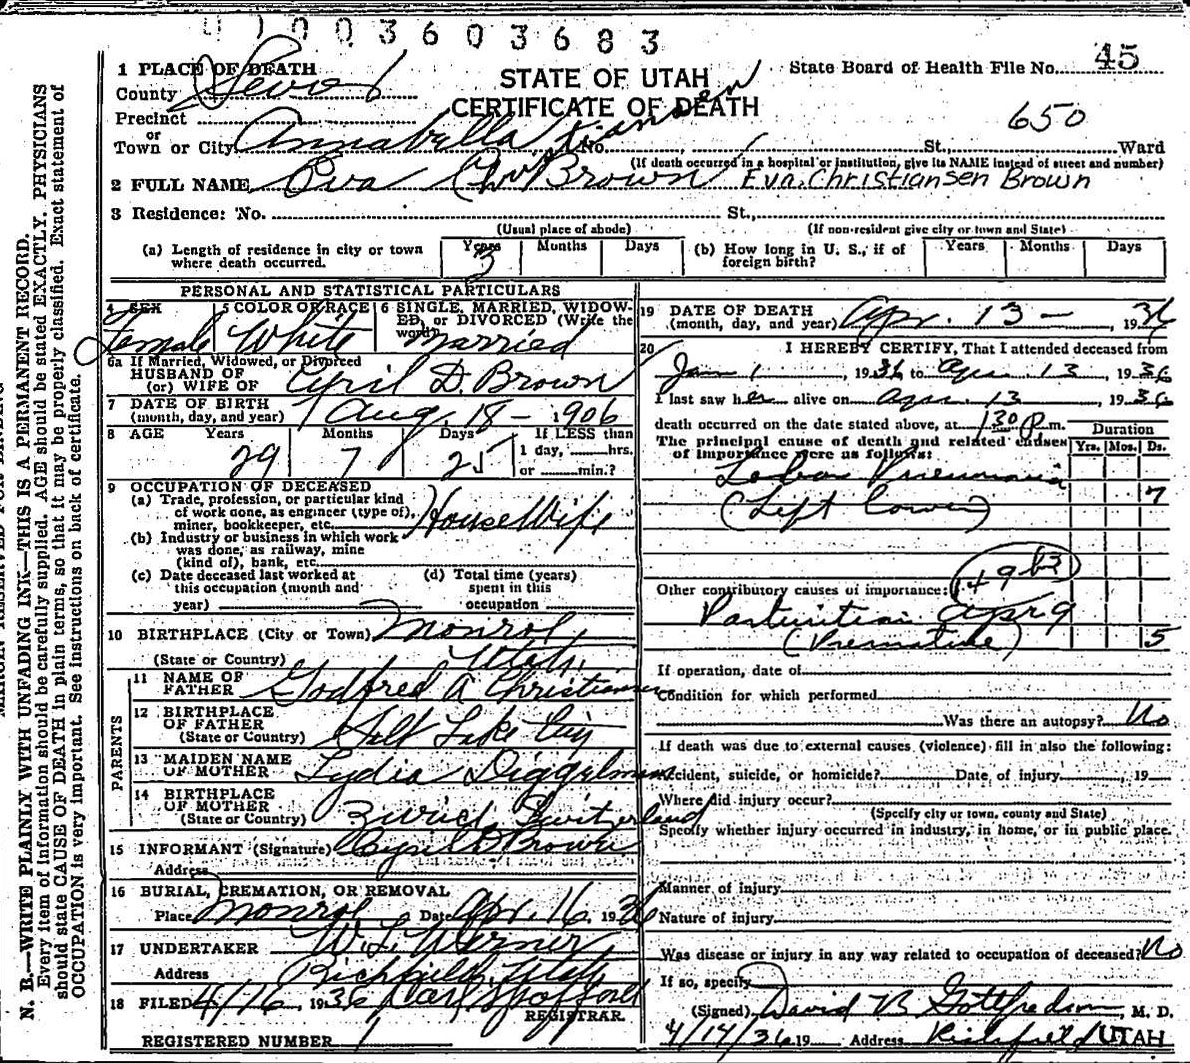 41003603683
45
1 PLACE OF DEATH
STATE OF UTAH
State Board of Health File No.
County Sevier
CERTIFICATE OF DEATH
Precinct
650
or
Town or City Annabella No. St., Ward
(If death occurred in a hospital or institution, give its NAME instead of street and number)
tiansen
2 FULL NAME Eva Chris Brown Eva Christiansen Brown
3 Residence: No. St.,
(Usual place of abode) (If non-resident give city or town and State)
(a) Length of residence in city or town where death occurred. Years 3 Months Days
(b) How long in U. S., if of foreign birth? Years Months Days
PERSONAL AND STATISTICAL PARTICULARS
4 SEX Female
5 COLOR OR RACE White
6 SINGLE, MARRIED, WIDOWED, or DIVORCED (Write the word) Married
6a If Married, Widowed, or Divorced
HUSBAND OF
(or) WIFE OF Cyril D. Brown
7 DATE OF BIRTH
(month, day, and year) Aug. 18 - 1906
8 AGE Years 29 Months 7 Days 25 If LESS than 1 day, hrs. or min.?
9 OCCUPATION OF DECEASED
(a) Trade, profession, or particular kind
of work done, as engineer (type of),
miner, bookkeeper, etc. HouseWife
(b) Industry or business in which work
was done, as railway, mine
(kind of), bank, etc.
(c) Date deceased last worked at
this occupation (month and
year)
(d) Total time (years)
spent in this
occupation
10 BIRTHPLACE (City or Town) Monroe,
(State or Country) Utah
PARENTS
11 NAME OF
FATHER Godfred A Christiansen
12 BIRTHPLACE
OF FATHER
(State or Country) Salt Lake City
13 MAIDEN NAME
OF MOTHER Lydia Diggelman
14 BIRTHPLACE
OF MOTHER
(State or Country) Zurich, Switzerland
15 INFORMANT (Signature) Cyril D Brown
Address
16 BURIAL, CREMATION, OR REMOVAL
Place Monroe Date Apr. 16, 1936
17 UNDERTAKER W. L. Werner
Address Richfield, Utah
18 FILED 4/16 1936 Carl Spafford
REGISTRAR.
REGISTERED NUMBER 1
19 DATE OF DEATH
(month, day, and year) Apr. 13 - 1936
20 I HEREBY CERTIFY, That I attended deceased from
Jan 1, 1936 to Apr. 13, 1936
I last saw her alive on Apr. 13, 1936
death occurred on the date stated above, at 1:30 P m.
The principal cause of death and related causes
of importance were as follows:
Duration
Yrs. Mos. Ds.
Lobar Pneumonia
(Left Lower) 7
149 b3
Other contributory causes of importance:
Parturition Apr 9
(Premature) 5
If operation, date of
Condition for which performed
Was there an autopsy? No
If death was due to external causes (violence) fill in also the following:
Accident, suicide, or homicide? Date of injury , 19
Where did injury occur?
(Specify city or town, county and State)
Specify whether injury occurred in industry, in home, or in public place.
Manner of injury
Nature of injury
Was disease or injury in any way related to occupation of deceased? No
If so, specify
(Signed) David B Gottfredson, M. D.
4/14/36 19 Address Richfield UTAH
N. B.—WRITE PLAINLY WITH UNFADING INK—THIS IS A PERMANENT RECORD.
Every item of information should be carefully supplied. AGE should be stated EXACTLY. PHYSICIANS
should state CAUSE OF DEATH in plain terms, so that it may be properly classified. Exact statement of
OCCUPATION is very important. See instructions on back of certificate.